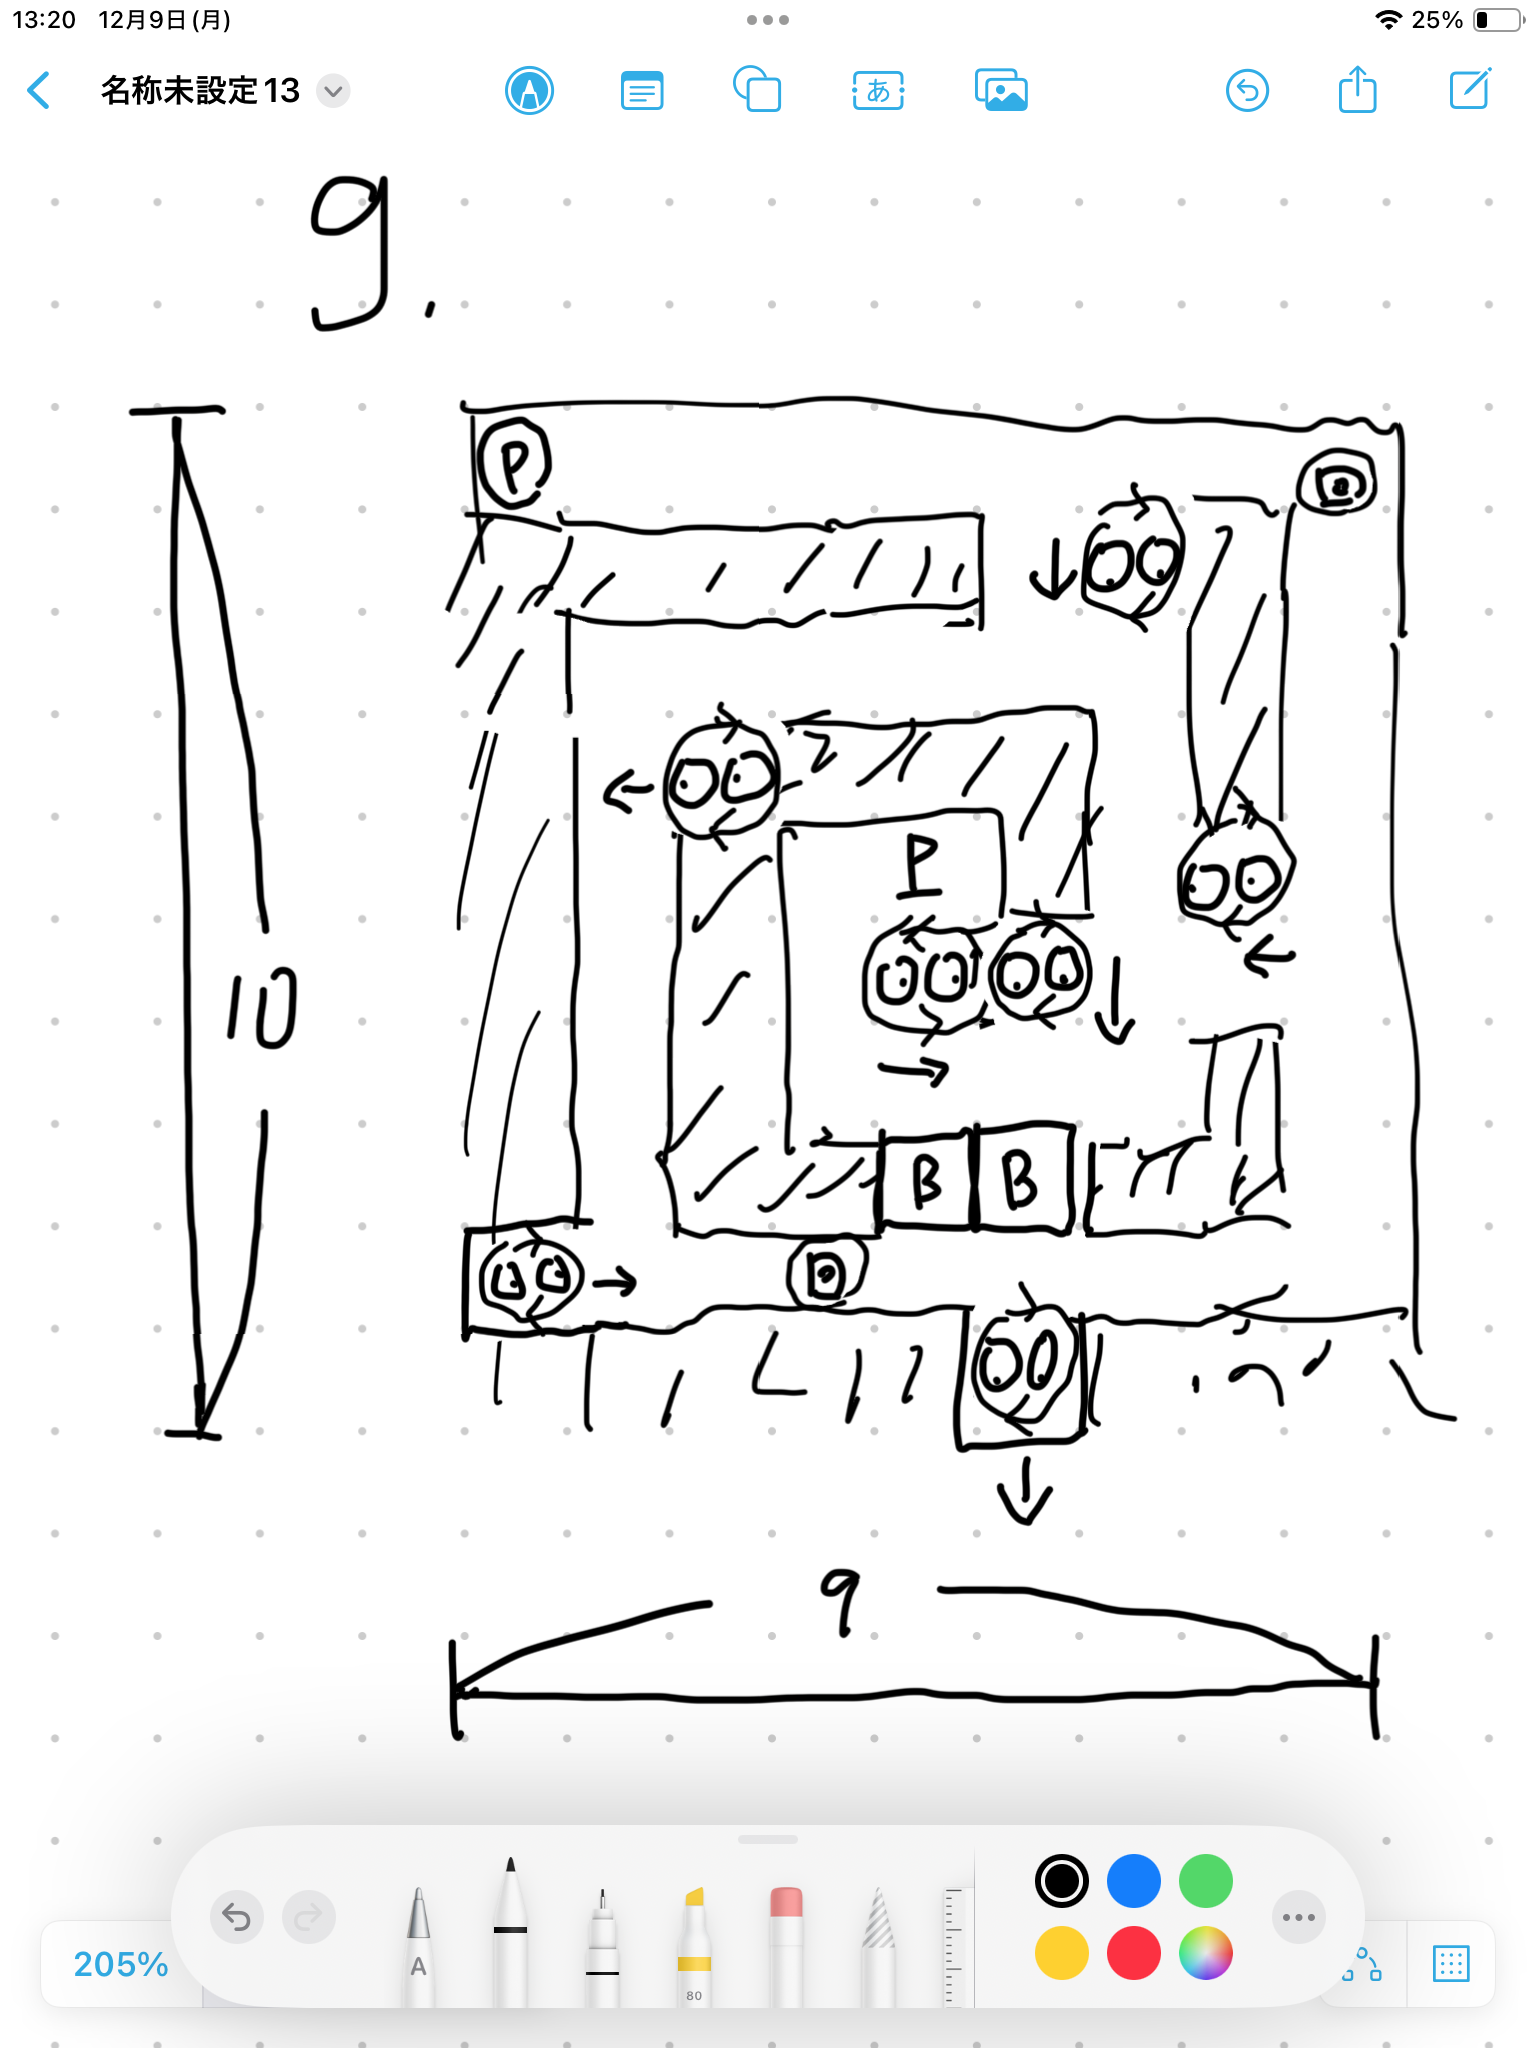 13:20 12月9日(月)
25%
名称未設定13
あ
9.
P
P
10
B B
9
205%
A
80